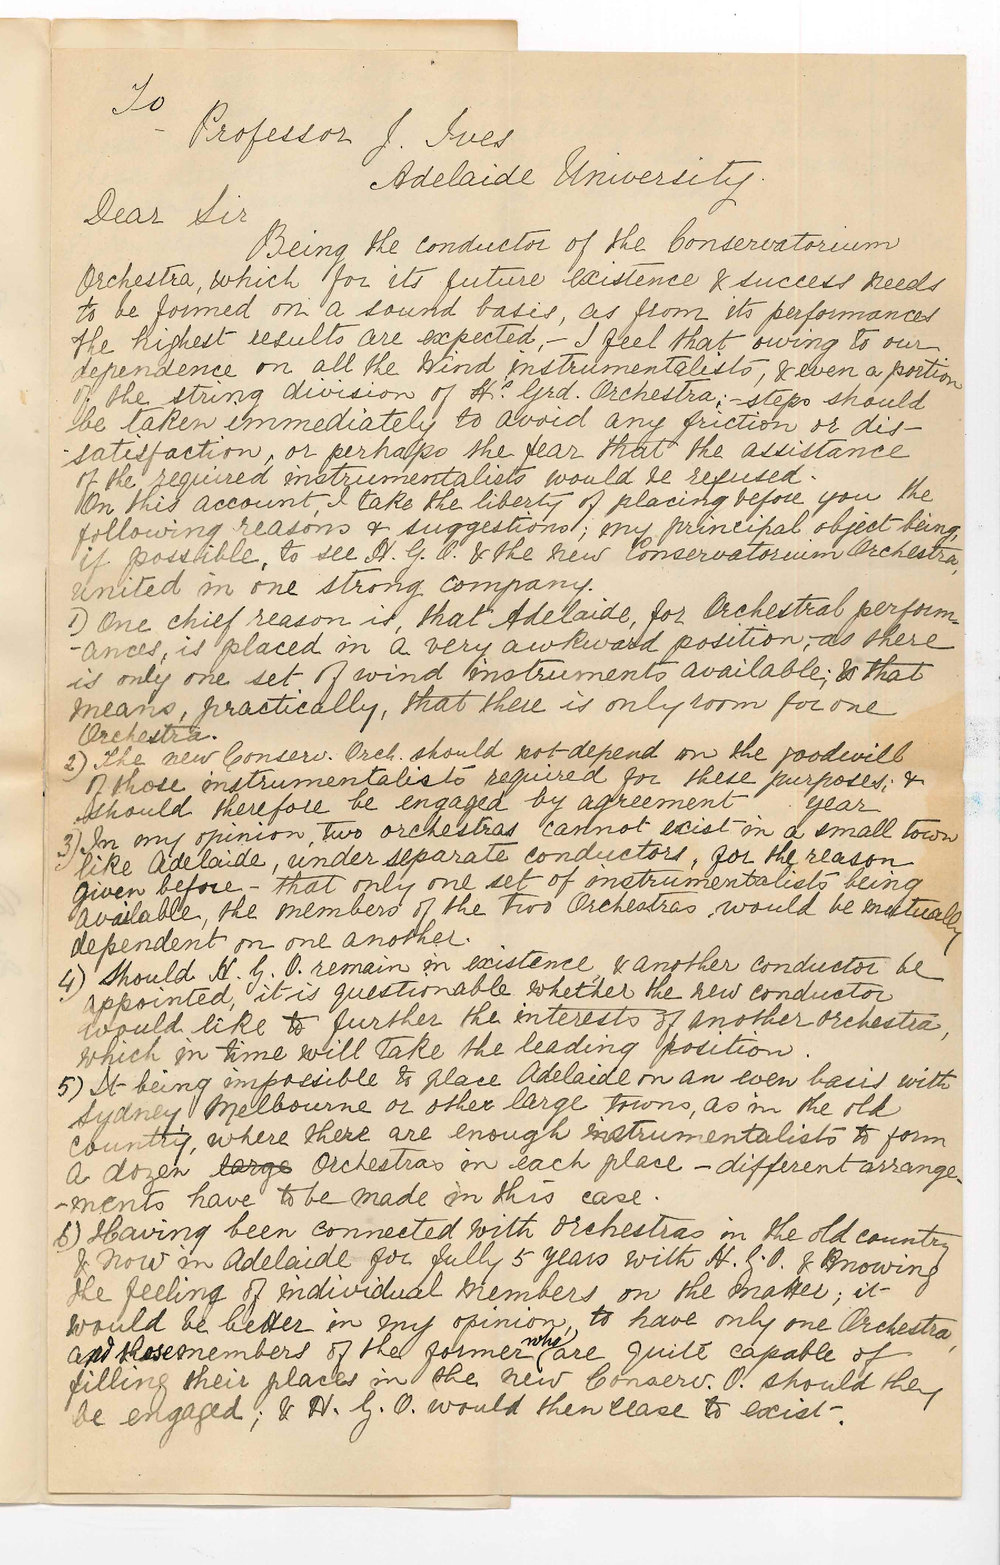 To
Professor J. Ives
Adelaide University.
Dear Sir
Being the conductor of the Conservatorium
Orchestra, which for its future existence & success needs
to be formed on a sound basis, as from its performances
the highest results are expected, – I feel that owing to our
dependence on all the Wind instrumentalists, & even a portion
of the string division of Hs. Grd. Orchestra; – steps should
be taken immediately to avoid any friction or dis-
-satisfaction, or perhaps the fear that the assistance
of the required instrumentalists would be refused.
On this account, I take the liberty of placing before you the
following reasons & suggestions; my principal object being,
if possible, to see H. G. O. & the new Conservatorium Orchestra,
united in one strong company.
1) One chief reason is, that Adelaide, for Orchestral perform-
-ances, is placed in a very awkward position, – as there
is only one set of wind instruments available; & that
means, practically, that there is only room for one
Orchestra.
2) The new Conserv. Orch. should not depend on the goodwill
of those instrumentalists required for these purposes; &
should therefore be engaged by agreement year
3) In my opinion, two orchestras cannot exist in a small town
like Adelaide, under separate conductors, for the reason
given before – that only one set of instrumentalists being
available, the members of the two Orchestras, would be mutually
dependent on one another.
4) Should H. G. O. remain in existence, & another conductor be
appointed, it is questionable whether the new conductor
would like to further the interests of another orchestra,
which in time will take the leading position.
5) It being impossible to place Adelaide on an even basis with
Sydney, Melbourne or other large towns, as in the old
country, where there are enough instrumentalists to form
a dozen large Orchestras in each place – different arrange-
-ments have to be made in this case.
6) Having been connected with orchestras in the old country
& now in Adelaide for fully 5 years with H. G. O. & knowing
the feeling of individual members on the matter; it
would be better in my opinion, to have only one Orchestra,
and those members of the former who are quite capable of
filling their places in the new Conserv. O. should they
be engaged; & H. G. O. would then cease to exist.